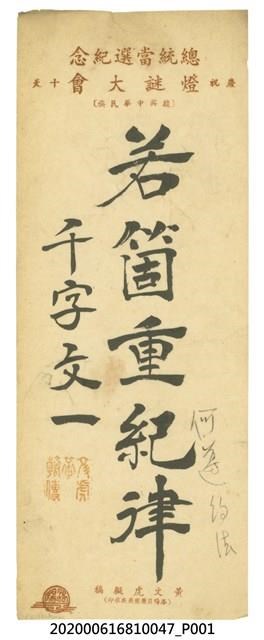 念紀選當統總
慶祝
會大謎燈
十天
若箇重紀律
千字文一
何遵約法
黃文虎擬稿
202000616810047_P001